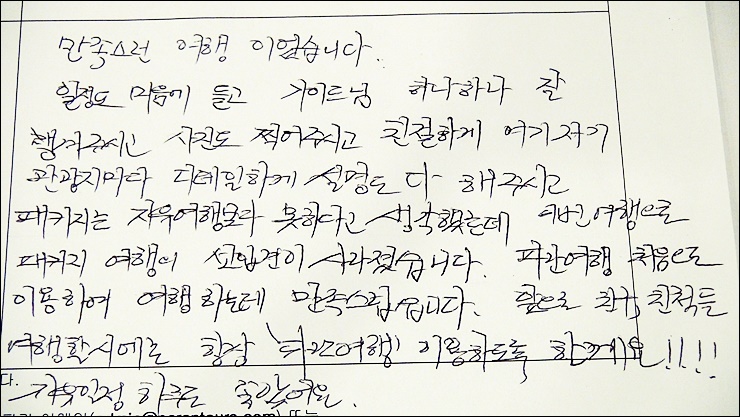 만족스런 여행 이었습니다.
일정도 마음에 들고 가이드님 하나하나 잘
챙겨주시고 사진도 찍어주시고 친절하게 여기저기
관광지마다 디테일하게 설명도 다 해주시고
패키지는 자유여행보다 못하다고 생각했는데 이번여행으로
패키지 여행의 선입견이 사라졌습니다. 파란여행 처음으로
이용하여 여행 하는데 만족스럽습니다. 앞으로 친구, 친척들
여행할시에는 항상 파란여행 이용하도록 할게요!!!!
다.
자유일정 하루도 즐거웠어요.